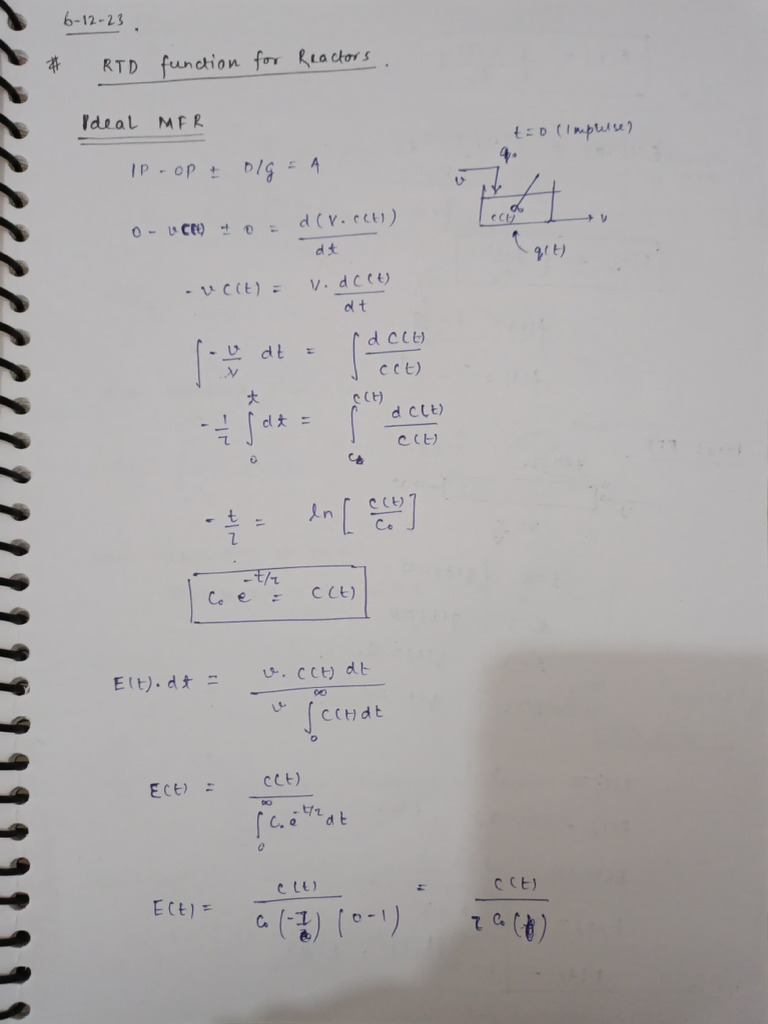 6-12-23.
# RTD function for Reactors.
Ideal MFR
t=0 (Impulse)
q₀
v
c(t)
v
q(t)
IP - OP ± D/g = A
0 - v C(t) ± 0 = d(V.c(t))/dt
- v C(t) = V. dC(t)/dt
∫ - v/V dt = ∫ dC(t)/C(t)
- 1/τ ∫₀ᵗ dt = ∫_{C₀}^{C(t)} dC(t)/C(t)
- t/τ = ln [ C(t)/C₀ ]
C₀ e^{-t/τ} = C(t)
E(t).dt = v. C(t) dt / v ∫₀^∞ C(t) dt
E(t) = C(t) / ∫₀^∞ C₀ e^{-t/τ} dt
E(t) = C(t) / C₀ (-τ) (0-1) = C(t) / τ C₀